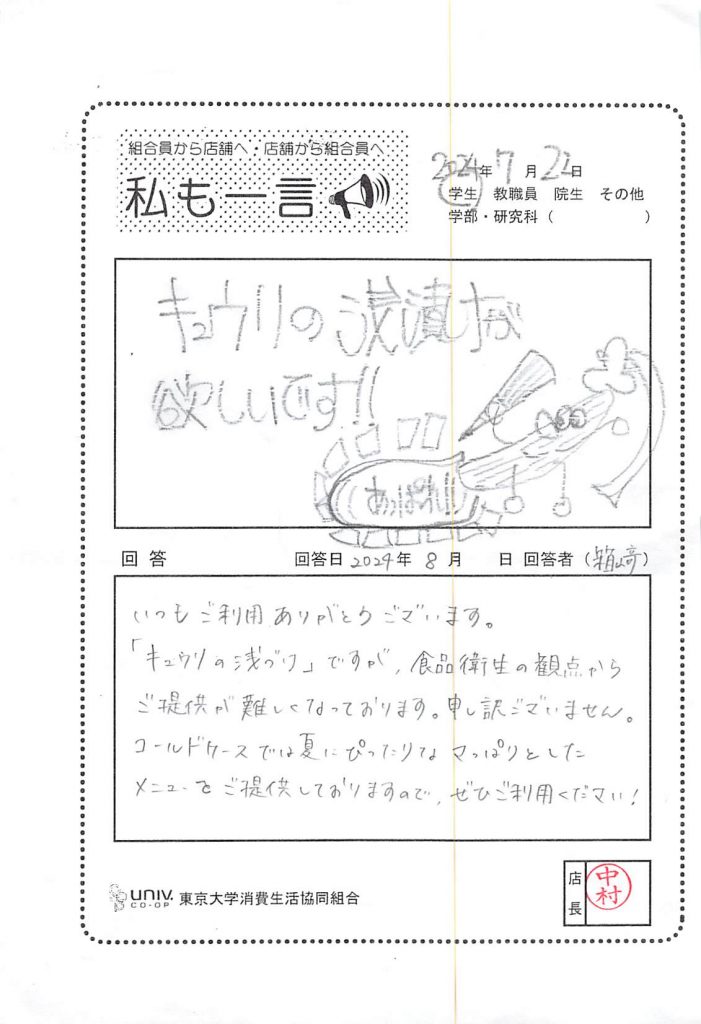 組合員から店舗へ・店舗から組合員へ
私も一言
2024年 7月 22日
学生 教職員 院生 その他
学部・研究科（ ）
キュウリの浅漬けが
欲しいです!!
あっぱれい!
回答 回答日 2024年 8月 日 回答者（箱崎）
いつもご利用ありがとうございます。
「キュウリの浅づけ」ですが、食品衛生の観点から
ご提供が難しくなっております。申し訳ございません。
コールドケースでは夏にぴったりなさっぱりとした
メニューをご提供しておりますので、ぜひご利用ください！
UNIV. CO-OP 東京大学消費生活協同組合
店長 中村